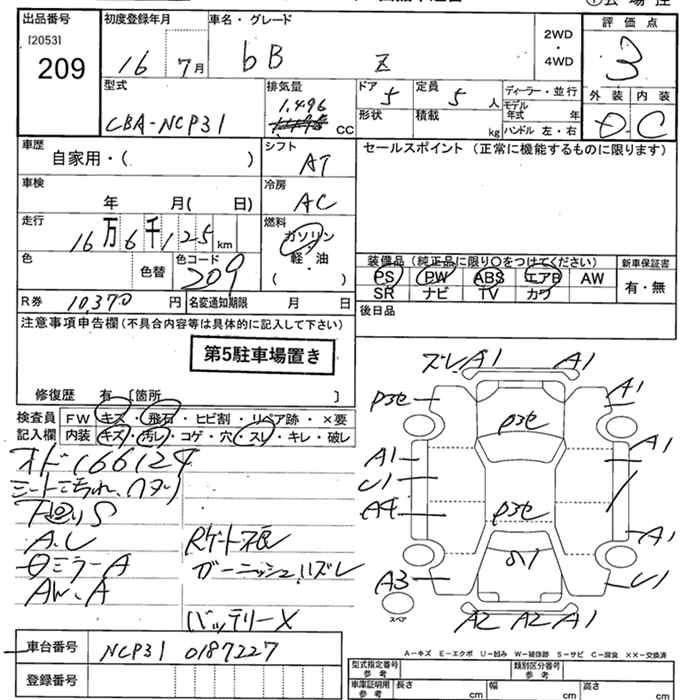 出品番号
[2053]
209
初度登録年月
16 7月
車名・グレード
bB Z
2WD
・
4WD
評価点
3
外装 内装
C
型式
CBA-NCP31
排気量
1,496
CC
ドア 5
形状
定員 5 人
積載 kg
ディーラー・並行
モデル
年式 年
ハンドル 左・右
車歴
自家用・( )
シフト
AT
セールスポイント (正常に機能するものに限ります)
車検
年 月( 日)
冷房
AC
走行
16万6千125km
燃料
ガソリン
・
軽・油
( )
色
色替
色コード
209
装備品 (純正品に限り○をつけてください)
PS PW ABS エアB AW
SR ナビ TV カワ
新車保証書
有・無
R券 10,370 円
名変通知期限 月 日
後日品
注意事項申告欄 (不具合内容等は具体的に記入して下さい)
第5駐車場置き
修復歴 有 〔箇所 〕
検査員
記入欄
FW キズ・飛石・ヒビ割・リペア跡・×要
内装 キズ・汚レ・コゲ・穴・スレ・キレ・破レ
オド166124
下回りS
A.C
ミラーA
AW.A
Rゲート
ガーニッシュズレ
バッテリーX
ズレ A1 A1
P3セ A1
P3セ
A1 A1
U1
A4
P3セ
A1
A3 U1
スペア
A2 A2 A1
A-キズ E-エクボ U-凹み W-補修跡 S-サビ C-腐食 ××-交換済
車台番号 NCP31 0187227
登録番号
型式指定番号
参考
類別区分番号
参考
車庫証明用
参考
長さ cm
幅 cm
高さ cm